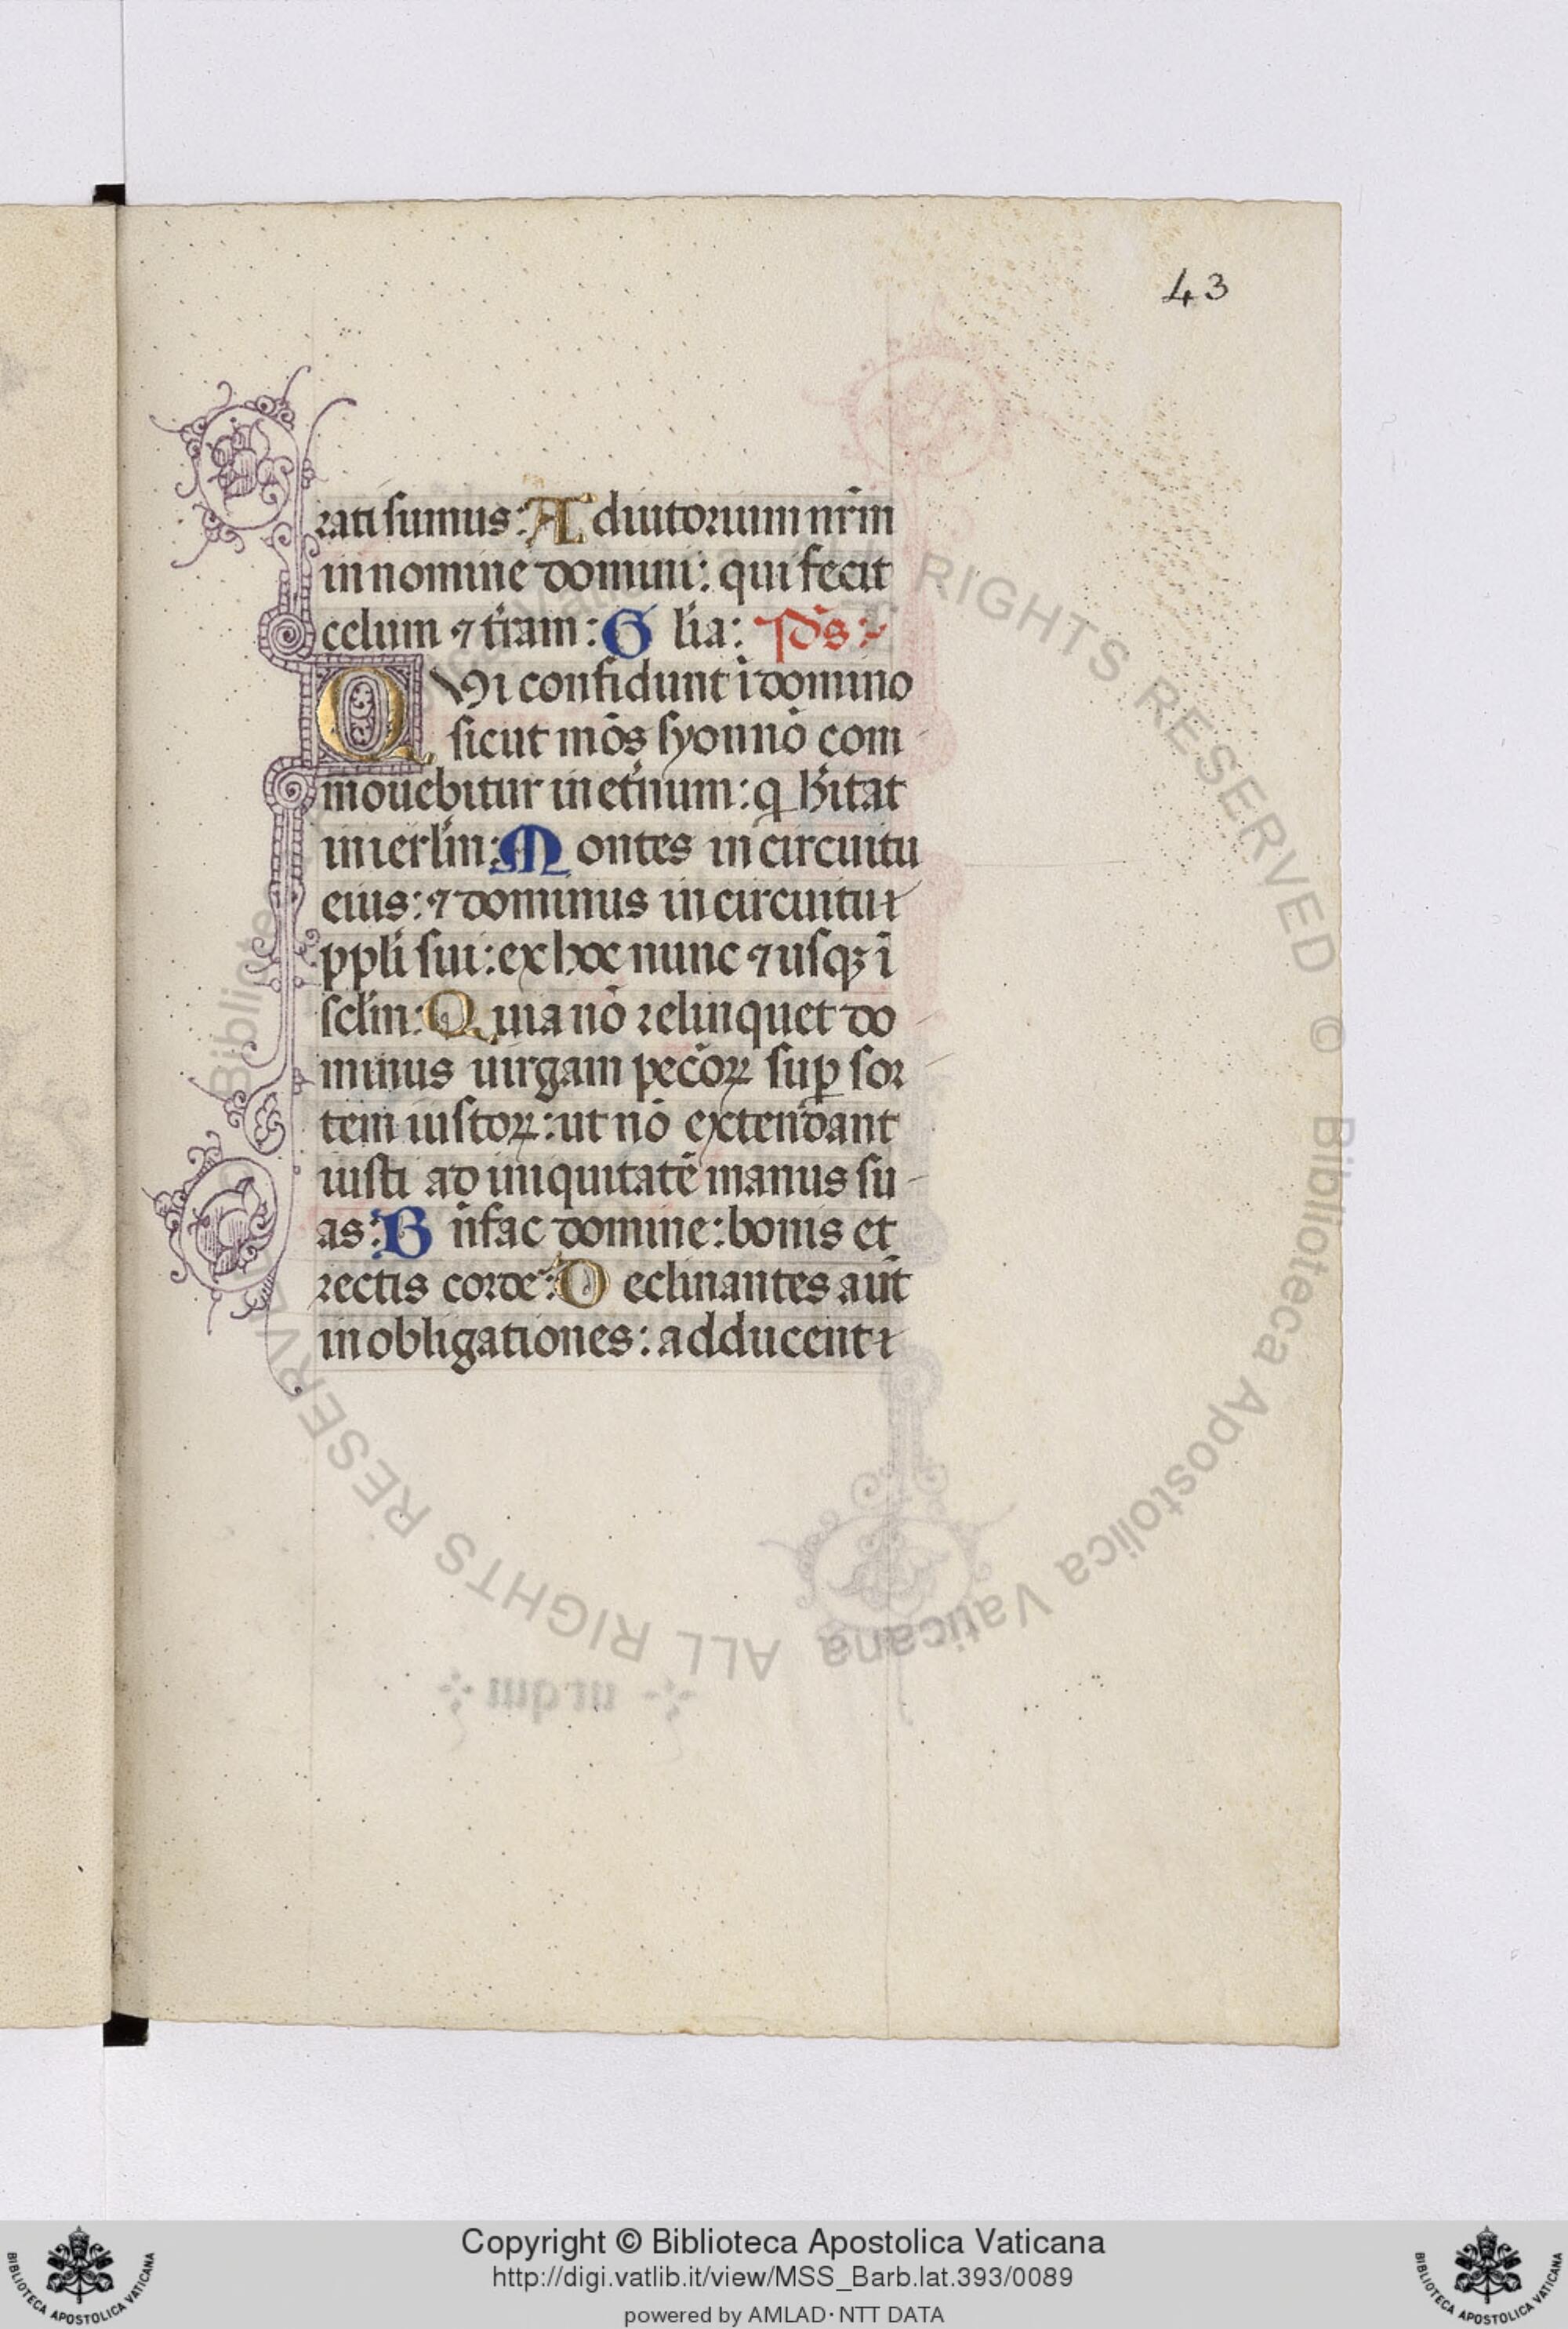 43
rati sumus: Adiutorium nr̄m
in nomine domini: qui fecit
celum ⁊ tr̄am: Gl̄ia: ps̄:
QUi confidunt ī domino
sicut mōs syon nō com
mouebitur in et̄num: q̄ hītat
in ierl̄m: Montes in circuitu
eius: ⁊ dominus in circuitu
ppl̄i sui: ex hoc nunc ⁊ usqꝫ ī
scl̄m: Quia nō relinquet do
minus uirgam pec̄oꝝ suꝑ sor
tem iustoꝝ: ut nō extendant
iusti ad iniquitatē manus su
as: Bn̄fac domine: bonis et
rectis corde: Declinantes aut̄
in obligationes: adducent
RIGHTS RESERVED © Biblioteca Apostolica Vaticana ALL RIGHTS RESERVED
Copyright © Biblioteca Apostolica Vaticana
http://digi.vatlib.it/view/MSS_Barb.lat.393/0089
powered by AMLAD·NTT DATA
BIBLIOTECA APOSTOLICA VATICANA
BIBLIOTECA APOSTOLICA VATICANA